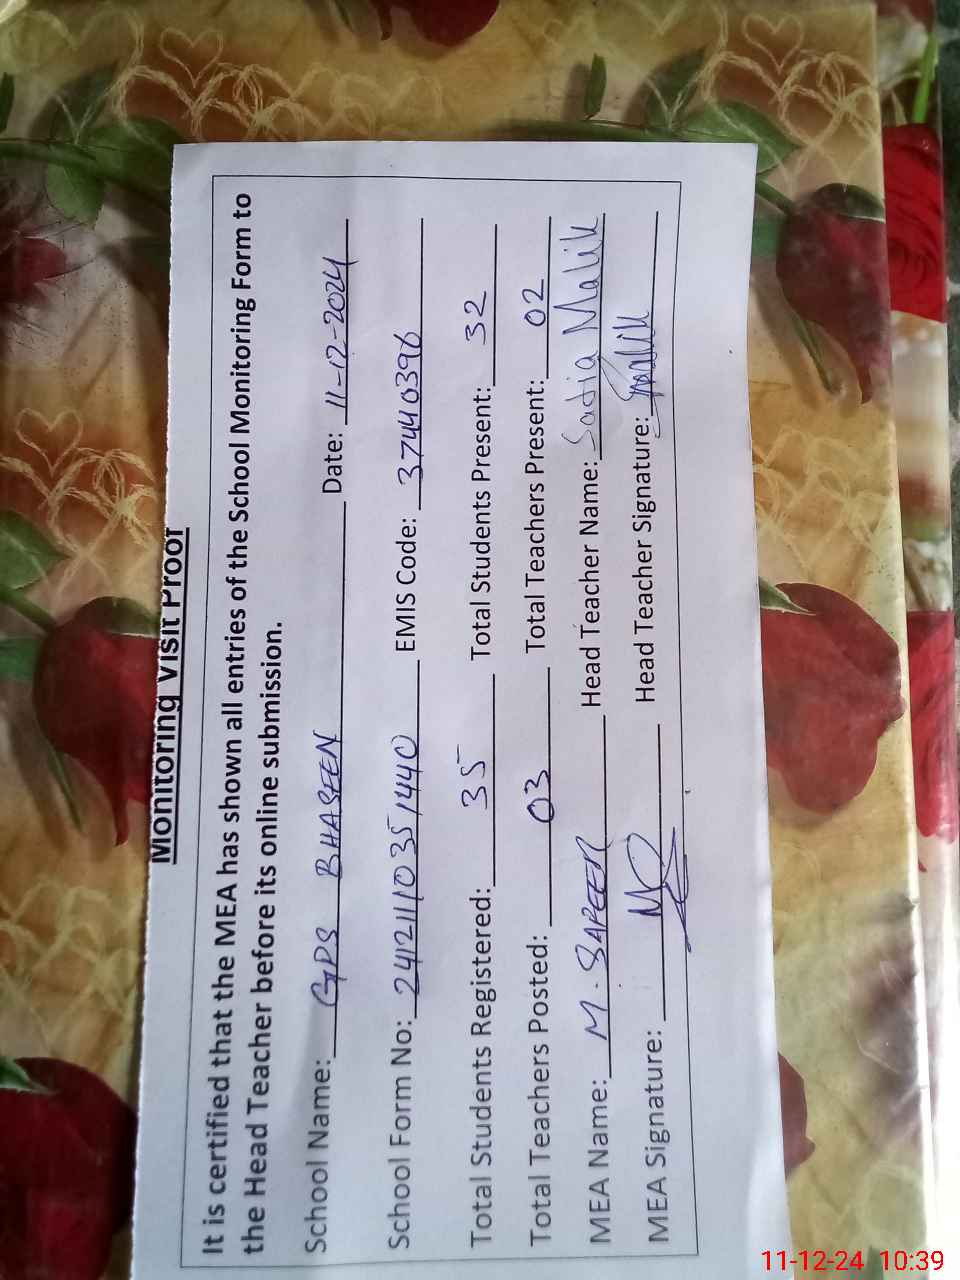 Monitoring Visit Proof
It is certified that the MEA has shown all entries of the School Monitoring Form to
the Head Teacher before its online submission.
School Name: GPS BHASEEN Date: 11-12-2024
School Form No: 2412110351440 EMIS Code: 37440396
Total Students Registered: 35 Total Students Present: 32
Total Teachers Posted: 03 Total Teachers Present: 02
MEA Name: M. Head Teacher Name: Sadia Malik
MEA Signature: Head Teacher Signature:
11-12-24 10:39